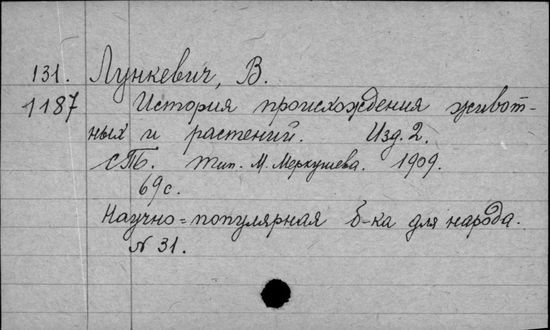 131. Лункевич, В.
1187 История происхождения живот-
ных и растений. Изд. 2.
СПб. Тип. М. Меркушева. 1909.
69 с.
Научно=популярная б-ка для народа.
N 31.